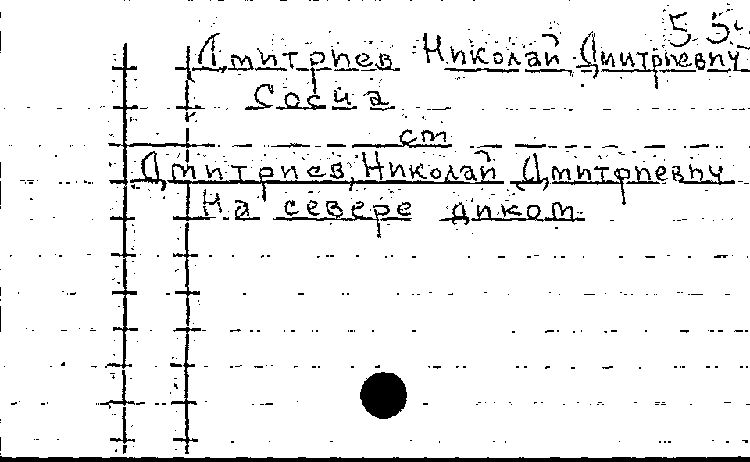 55.
Дмитриев Николай Дмитриевич
Сосна
ст
Дмитриев, Николай Дмитриевич
На севере диком.